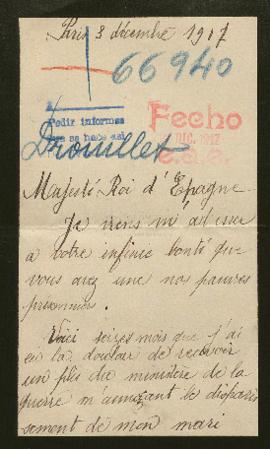 Paris 3 décembre 1917
66940
Pedir informes
que se hace así
Fecho
DIC. 1917
Drouillet
Majesté Roi d'Epagne
Je viens m'adresser
a votre infinie bonté que
vous avez une nos pauvres
prisonniers.
Voici seizes mois que j'ai
eu la douleur de recevoir
un plis du ministère de la
guerre m'annonçant le disparis
sement de mon mari